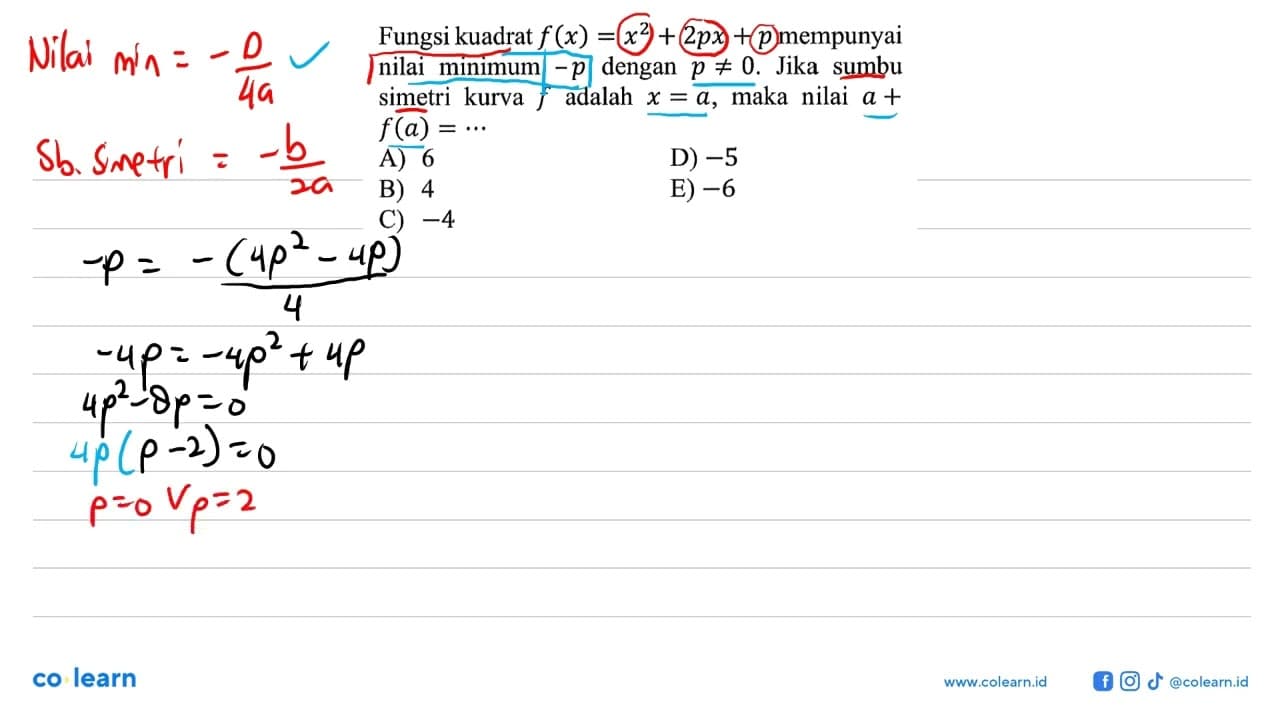 Nilai min = -D/4a ✓
Sb. Smetri = -b/2a
Fungsi kuadrat f(x) = x² + 2px + p mempunyai
nilai minimum -p dengan p ≠ 0. Jika sumbu
simetri kurva f adalah x = a, maka nilai a +
f(a) = ⋯
A) 6
B) 4
C) −4
D) −5
E) −6
-p = -(4p² - 4p)/4
-4p = -4p² + 4p
4p² - 8p = 0
4p(p - 2) = 0
p = 0 V p = 2
co·learn
www.colearn.id
@colearn.id